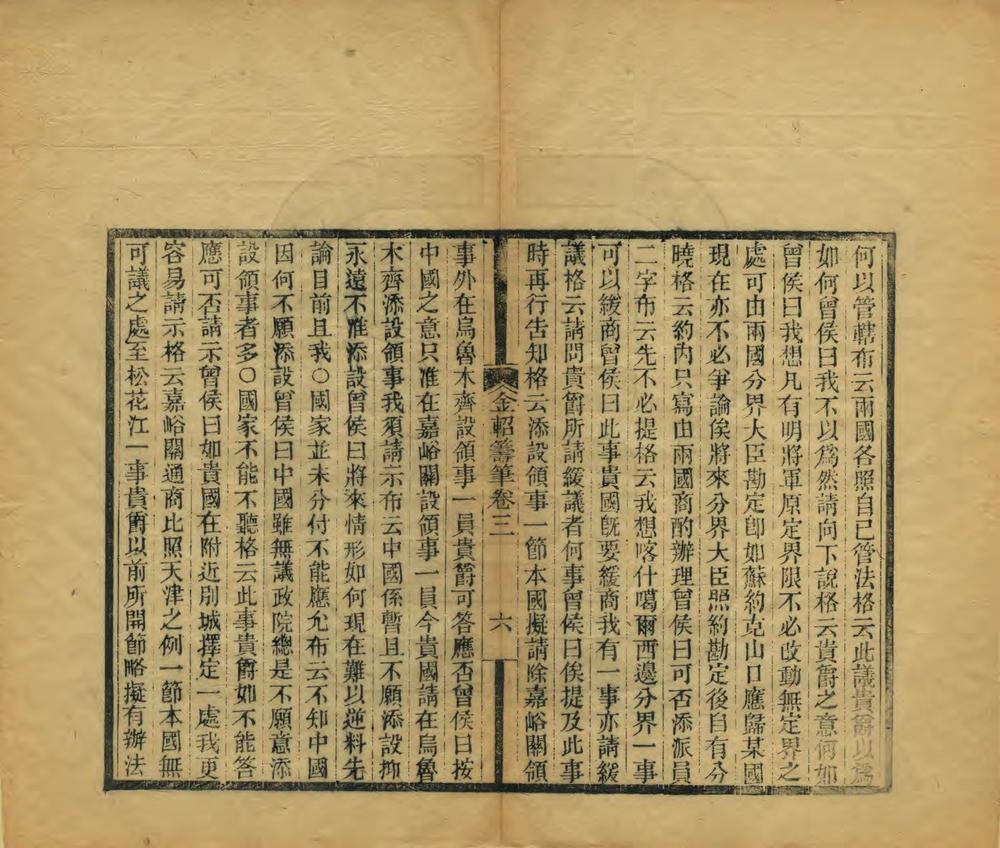 何以管轄布云兩國各照自己管法格云此議貴爵以爲
如何曾侯曰我不以爲然請向下說格云貴爵之意何如
曾侯曰我想凡有明將軍原定界限不必改動無定界之
處可由兩國分界大臣勘定卽如蘇約克山口應歸某國
現在亦不必爭論俟將來分界大臣照約勘定後自有分
曉格云約內只寫由兩國商酌辦理曾侯曰可否添派員
二字布云先不必提格云我想喀什噶爾西邊分界一事
可以緩商曾侯曰此事貴國旣要緩商我有一事亦請緩
議格云請問貴爵所請緩議者何事曾侯曰俟提及此事
時再行告知格云添設領事一節本國擬請除嘉峪關領
金軺籌筆卷三 六
事外在烏魯木齊設領事一員貴爵可答應否曾侯曰按
中國之意只准在嘉峪關設領事一員今貴國請在烏魯
木齊添設領事我須請示布云中國係暫且不願添設抑
永遠不准添設曾侯曰將來情形如何現在難以逆料先
論目前且我〇國家並未分付不能應允布云不知中國
因何不願添設曾侯曰中國雖無議政院總是不願意添
設領事者多〇國家不能不聽格云此事貴爵如不能答
應可否請示曾侯曰如貴國在附近別城擇定一處我更
容易請示格云嘉峪關通商比照天津之例一節本國無
可議之處至松花江一事貴爵以前所開節略擬有辦法